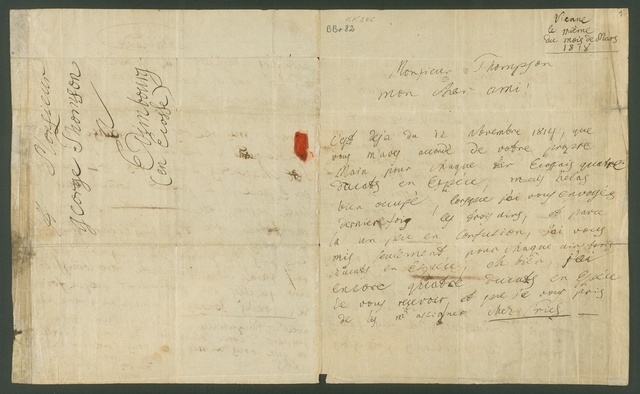 A Monsieur
George Thomson
à
Edimbourg
en Ecosse
BBr 82
Vienne
le même
du mois de Mars
1818
1
Monsieur Thompson
mon cher ami!
C'est déja du 12 Novembre 1814, que
vous m'avés accordé de votre propre
Main pour chaque air Ecossais quatre
ducats en Espéce, mais hélas
bien occupé, lorsque j'ai vous envoyés
derniere fois les trois airs, et parce
la un peu en confusion, j'ai vous
mis seulement pour chaque air trois
ducats en Espece, eh bien j'ai
encore quatre ducats en Espece
de vous recevoir, et que je vous prie
de les assigner chez Fries